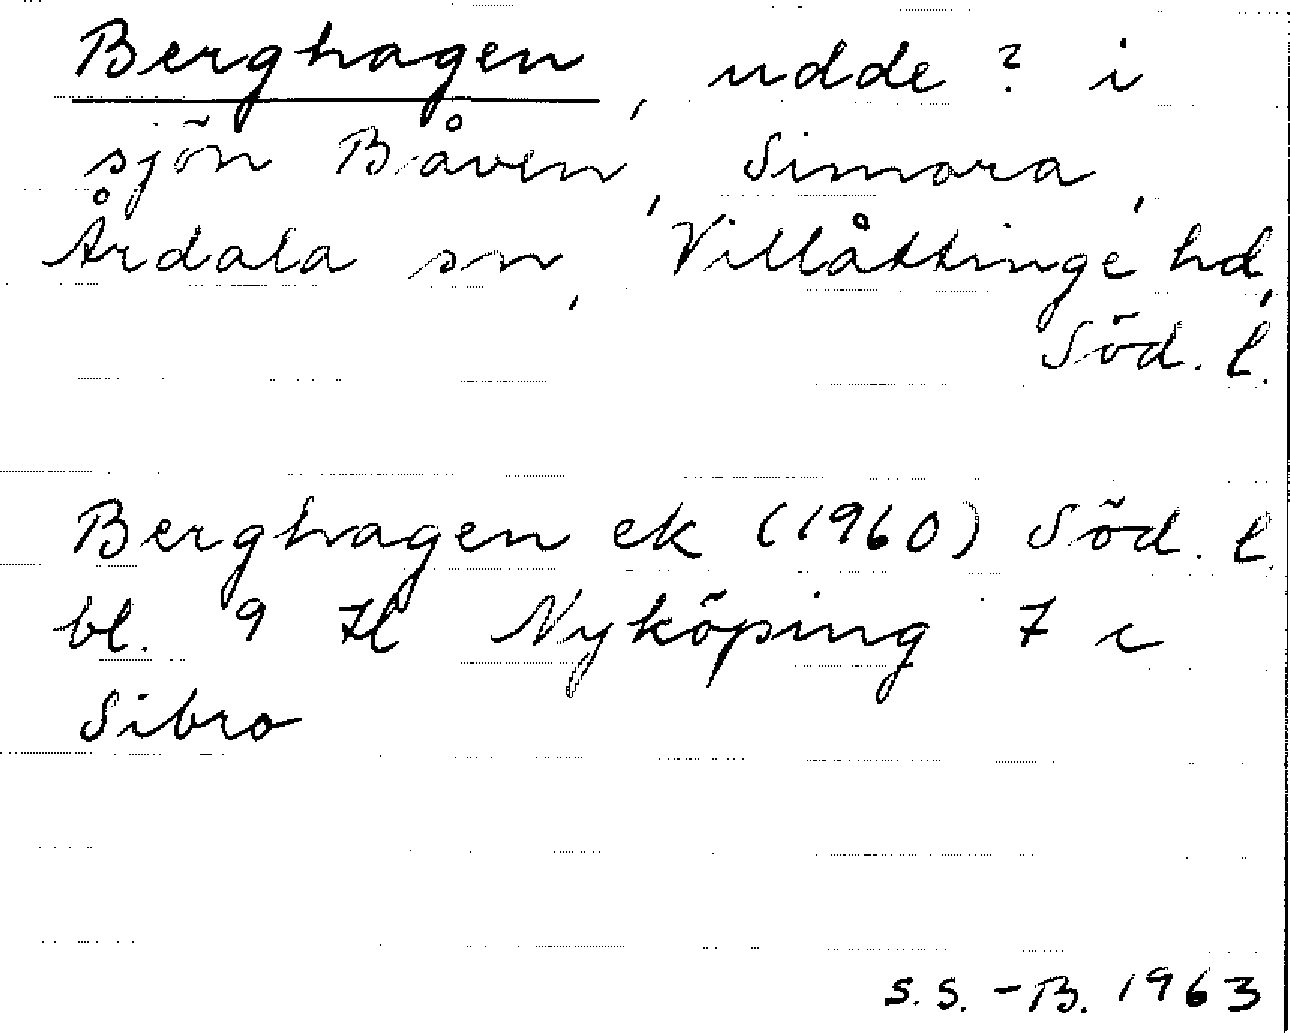 Berghagen, udde? i
sjön Båven, Simora,
Årdala sn, Villåttinge hd,
Söd. l.
Berghagen ek (1960) Söd. l.
bl. 9 H Nyköping 7 c
Sibro
S.S.-B. 1963